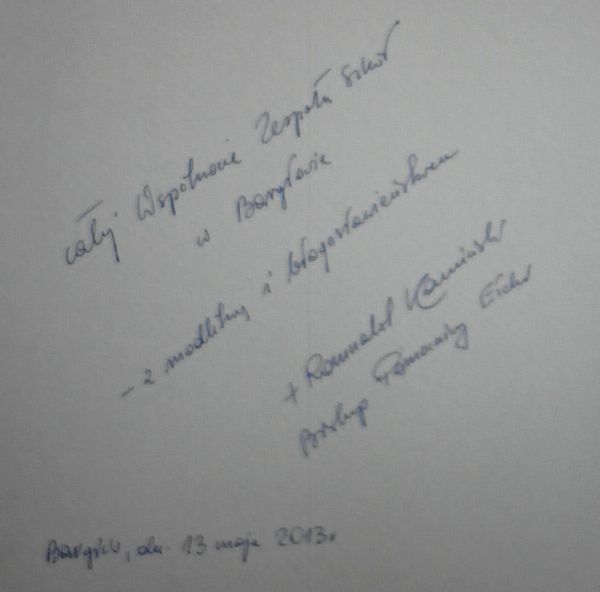 całej Wspólnocie Zespołu Szkół
w Bargłowie
- z modlitwą i błogosławieństwem
+ Romuald Kamiński
Biskup Pomocniczy Ełcki
Bargłów, dn. 13 maja 2013r